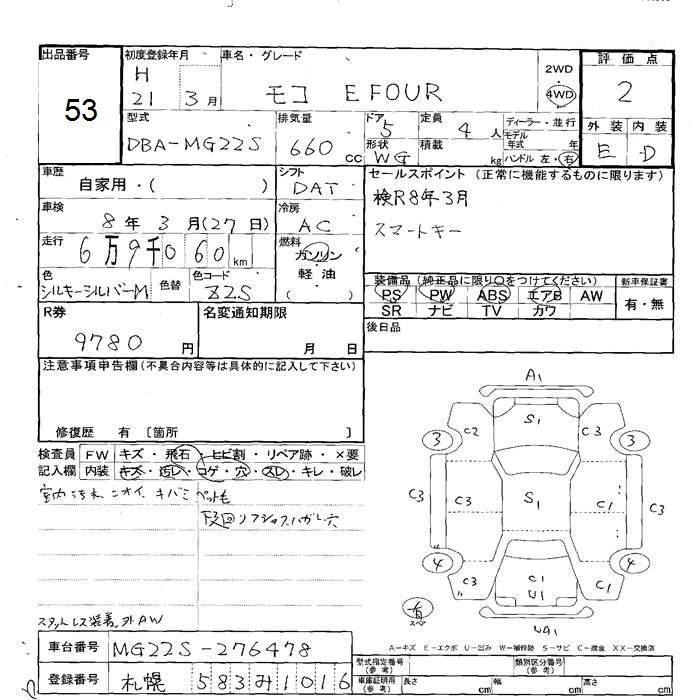 出品番号
53
初度登録年月
H
21 3月
車名・グレード
モコ E FOUR
2WD
・
4WD
評価点
2
外装 内装
E D
型式
DBA-MG22S
排気量
660 cc
ドア 5
形状 WG
定員 4 人
積載 kg
ディーラー・並行
モデル
年式 年
ハンドル 左・右
車歴
自家用・( )
シフト
DAT
セールスポイント (正常に機能するものに限ります)
検R8年3月
スマートキー
車検
8年3月(27日)
冷房
AC
走行
6万9千060km
燃料
ガソリン
軽油
( )
色
シルキーシルバーM
色替
色コード
Z2S
装備品(純正品に限り○をつけてください)
PS PW ABS エアB AW
SR ナビ TV カワ
新車保証書
有・無
R券
9780円
名変通知期限
月 日
後日品
注意事項申告欄(不具合内容等は具体的に記入して下さい)
修復歴 有 〔箇所 〕
検査員
記入欄
FW キズ・飛石・ヒビ割・リペア跡・×要
内装 キズ・汚レ・コゲ・穴・スレ・キレ・破レ
室内汚れ ニオイ キバミ ペット毛
スタットレス装着 外AW
A1
C2 S1 C3
3 3
C3 C3 S1 C1 C3
4 4
C3 C1 U1 C1
UA1
スペア
A-キズ E-エクボ U-凹み W-補修跡 S-サビ C-腐食 XX-交換済
車台番号
MG22S-276478
登録番号
札幌 583み1016
型式指定番号
(参考)
類別区分番号
(参考)
車庫証明用
(参考)
長さ cm 幅 cm 高さ cm